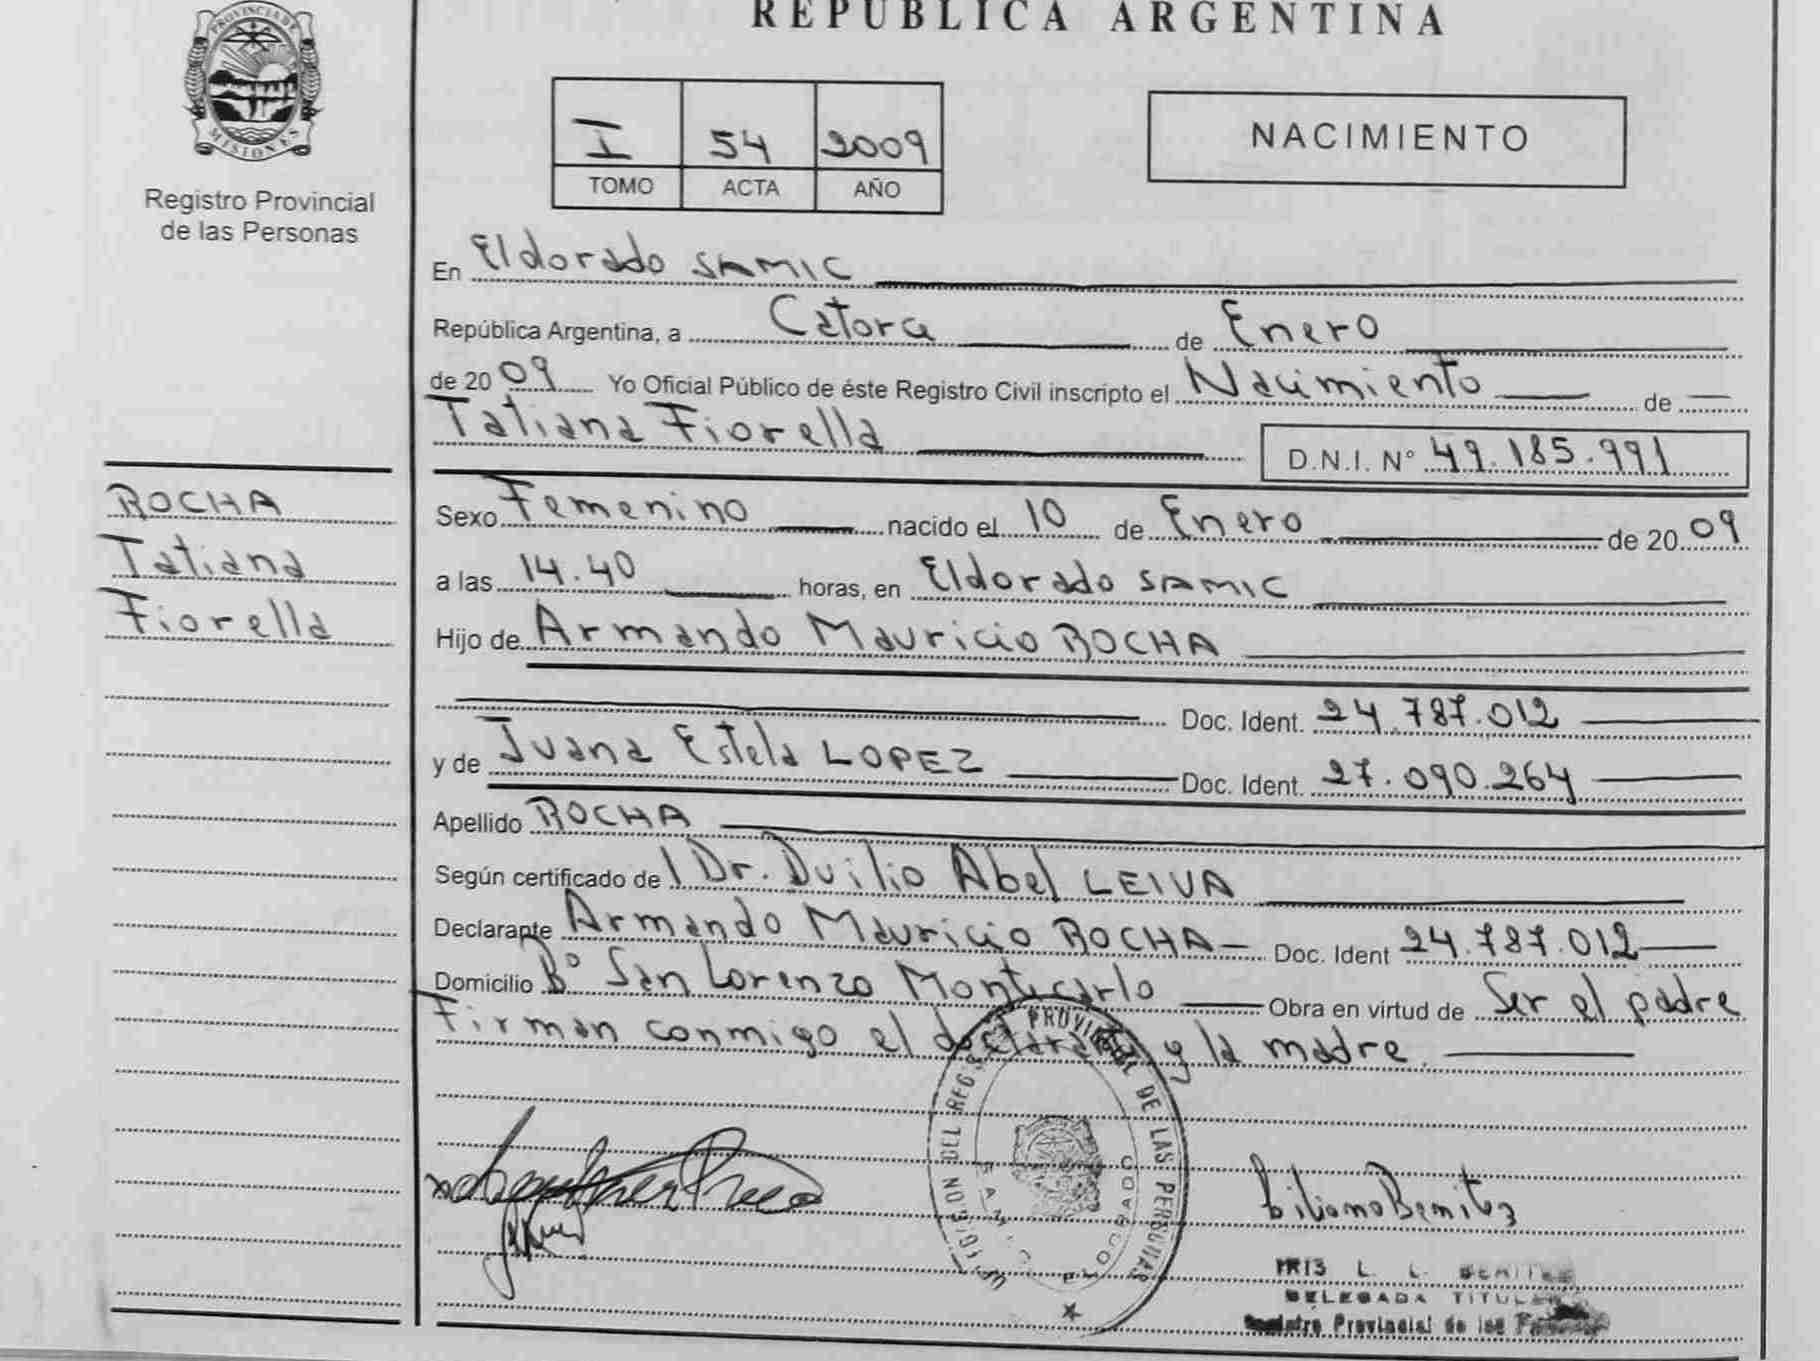 REPÚBLICA ARGENTINA
PROVINCIA DE
MISIONES
Registro Provincial
de las Personas
I 54 2009
TOMO ACTA AÑO
NACIMIENTO
En Eldorado SAMIC
República Argentina, a Catorce de Enero
de 2009 Yo Oficial Público de éste Registro Civil inscripto el Nacimiento de
Tatiana Fiorella D.N.I. N° 49.185.991
ROCHA
Tatiana
Fiorella
Sexo Femenino nacido el 10 de Enero de 2009
a las 14.40 horas, en Eldorado SAMIC
Hijo de Armando Mauricio ROCHA
Doc. Ident. 24.787.012
y de Juana Estela LOPEZ Doc. Ident. 27.090.264
Apellido ROCHA
Según certificado de l Dr. Duilio Abel LEIVA
Declarante Armando Mauricio ROCHA Doc. Ident 24.787.012
Domicilio B° San Lorenzo Montecarlo Obra en virtud de Ser el padre
Firman conmigo el declarante y la madre.
DEL REG PROVINCIAL DE LAS PERSONAS
ELDORADO
Liliana Benitez
IRIS L. L. BENITEZ
DELEGADA TITULAR
Registro Provincial de las